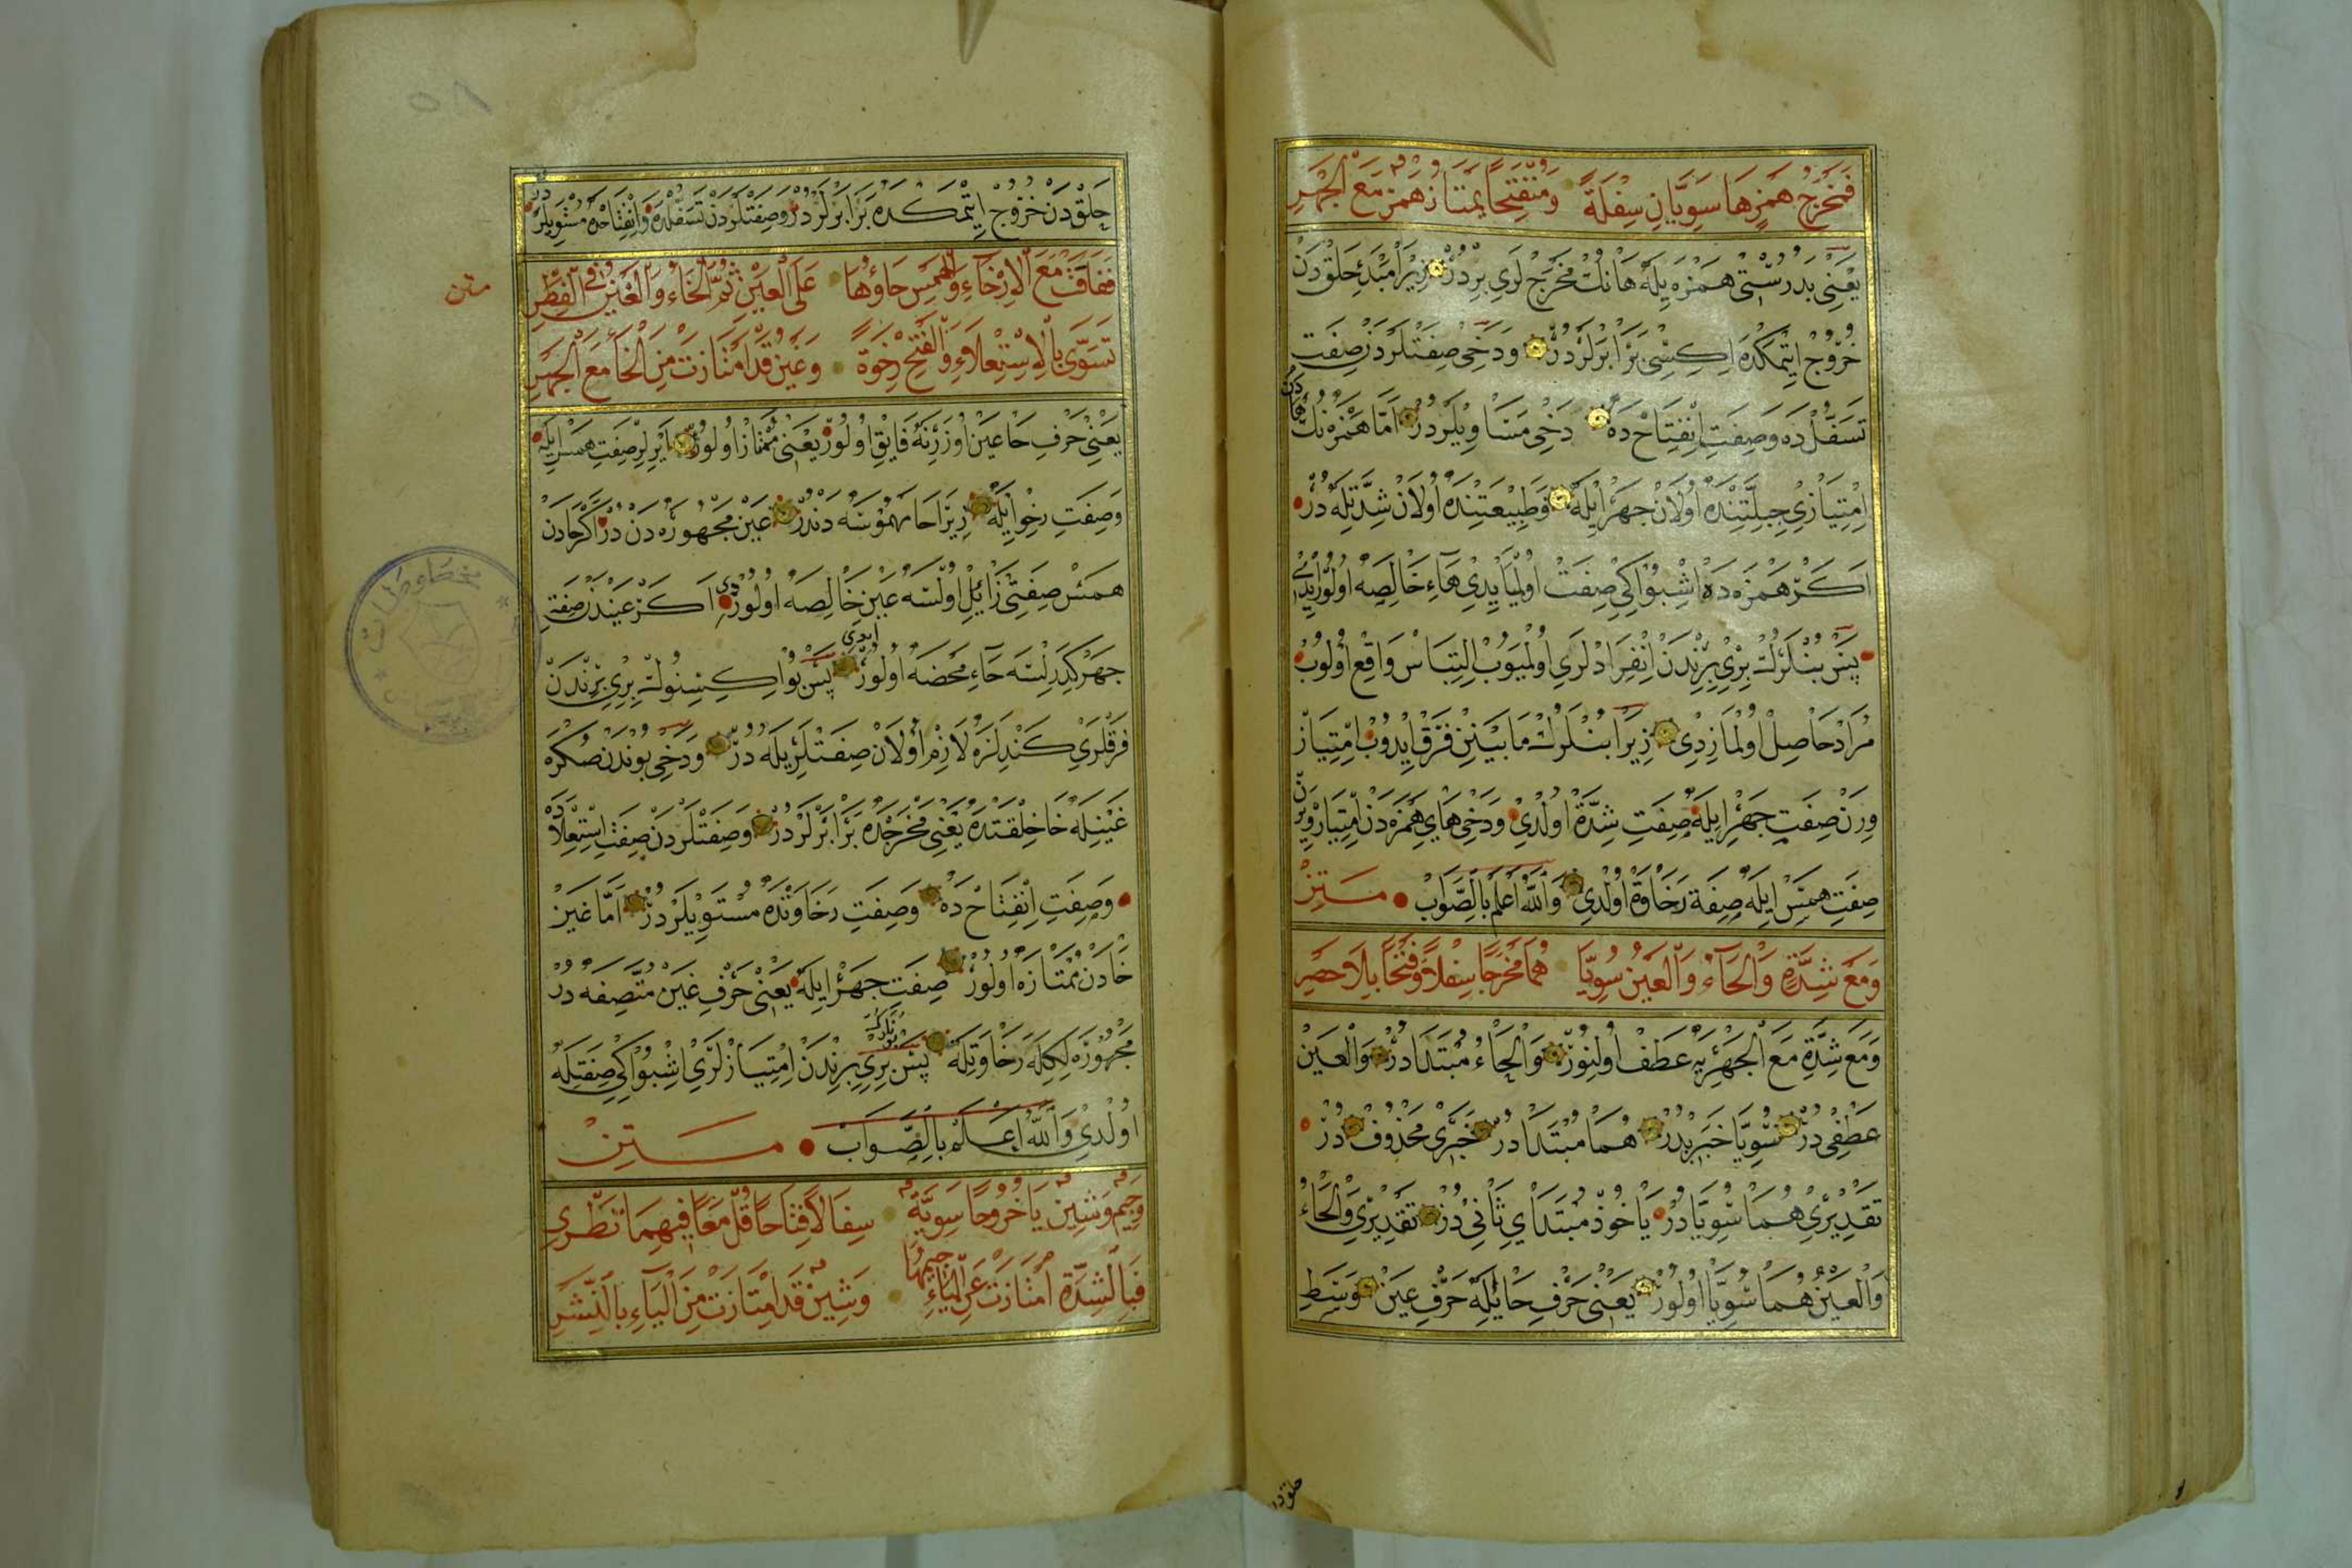 فَمَخْرَجُ هَمْزٍ هَا سَوِيَّانِ سِفْلَةً وَمُنْفَتِحًا يَمْتَازُ هَمْزٌ مَعَ الْجَهْرِ
يَعْنِى بَدُرُسْتِى هَمْزَه يِلَه هَانُكْ مَخْرَجْ لَرِى بِرْدُرْ زِيرَا مَبْدَءِ حَلْقْدَنْ
خُرُوجْ ايتْمَكْدَه اِكِيسِى بَرَابَرْلَرْدُرْ وَدَخِى صِفَتْلَرْدَنْ صِفَتِ
تَسَفُّلْ دَه وَصِفَتِ اِنْفِتَاحْ دَه دَخِى مُسَاوِيلَرْدُرْ اَمَّا هَمْزَه نُكْ
اِمْتِيَازِى جِبِلَّتِنْدَه اُولَانْ جَهْرْ اِيلَه وَطَبِيعَتِنْدَه اُولَانْ شِدَّتِلَه دُرْ
اَكَرْ هَمْزَه دَه اِشْبُو اِكِى صِفَتْ اُولْمَايَيْدِى هَاءِ خَالِصَه اُولُورْ اِيدِى
پَسْ بُنْلَرُكْ بِرِى بِرِنْدَنْ اِنْفِرَادْلَرِى اُولْمَيُوبْ اِلْتِبَاسْ وَاقِعْ اُولُوبْ
مُرَادْ حَاصِلْ اُولْمَازِدِى زِيرَا بُنْلَرُكْ مَا بَيْنِينْ فَرْقْ اِيدُوبْ اِمْتِيَازْ
وِرَنْ صِفَتِ جَهْرْ اِيلَه صِفَتِ شِدَّةْ اُولْدِى وَدَخِى هَايِ هَمْزَه دَنْ اِمْتِيَازْ وِيرَنْ
صِفَتِ هَمْسْ اِيلَه صِفَة رَخَاوَةْ اُولْدِى وَاللهُ اَعْلَمُ بِالصَّوَابْ مَتِنْ
وَمَعَ شِدَّةٍ وَالْحَاءُ وَالْعَيْنُ سُوِّيَا هُمَا مَخْرَجًا سِفْلًا وَفَتْحًا بِلَا حَصْرِ
وَمَعَ شِدَّةٍ مَعَ الْجَهْرِ يَه عَطَفْ اُولِنُورْ وَالْحَاءُ مُبْتَدَا دُرْ وَالْعَيْنُ
عَطْفِى دُرْ سُوِّيَا خَبَرِيدُرْ هُمَا مُبْتَدَا دُرْ خَبَرِى مَحْذُوفْ دُرْ
تَقْدِيرِى هُمَا سُوِّيَا دُرْ يَاخُوذْ مُبْتَدَاىِ ثَانِى دُرْ تَقْدِيرِى وَالْحَاءُ
وَالْعَيْنُ هُمَا سُوِّيَا اُولُورْ يَعْنِى حَرْفِ حَا يِلَه حَرْفِ عَيْنْ وَسَطِ
حلقدن
متن
حَلْقْدَنْ خُرُوجْ اِيتْمَكْدَه بَرَابَرْلَرْدُرْ وَصِفَتْلَرْدَنْ تَسَفُّلْدَه وَاِنْفِتَاحْدَه مُسْتَوِيلَرْدُرْ
فَفَاقَتْ مَعَ الْاِرْخَاءِ وَالْهَمْسِ حَاؤُهَا عَلَى الْعَيْنِ ثُمَّ الْخَاءُ وَالْغَيْنُ فِى الْفِطْرِ
تَسَوَّى بِالِاسْتِعْلَاءِ وَالْفَتْحِ رِخْوَةً وَغَيْنٌ قَدِ امْتَازَتْ مِنَ الْخَا مَعَ الْجَهْرِ
يَعْنِى حَرْفِ حَا عَيْنْ اُوزَرِنَه فَايِقْ اُولُورْ يَعْنِى مُمْتَازْ اُولُورْ اَيْرِلِرْ صِفَتِ هَمْسْ اِيلَه
وَصِفَتِ رِخْوْ اِيلَه زِيرَا حَا مَهْمُوسَه دَنْدُرْ عَيْنْ مَجْهُورَه دَنْ دُرْ اَكَرْ حَادَنْ
هَمْسْ صِفَتِى زَائِلْ اُولْسَه عَيْنِ خَالِصَه اُولُورْدِى اَكَرْ عَيْنْدَنْ صِفَتِ
جَهْرْ كِدَرِلْسَه حَاءِ مَحْضَه اُولُورْ اِيدِى پَسْ بُو اِكِيسِنُوكْ بِرِى بِرِنْدَنْ
فَرْقْلَرِى كَنْدِلَرَه لَازِمْ اُولَانْ صِفَتْلَرِيلَه دُرْ وَدَخِى بُونْدَنْ صُكْرَه
غَيْنِلَه خَا خِلْقَتْدَه يَعْنِى مَخْرَجْدَه بَرَابَرْلَرْدُرْ وَصِفَتْلَرْدَنْ صِفَتِ اِسْتِعْلَادَه
وَصِفَتِ اِنْفِتَاحْ دَه وَصِفَتِ رَخَاوَتْدَه مُسْتَوِيلَرْدُرْ اَمَّا غَيْنْ
خَادَنْ مُمْتَازَه اُولُورْ صِفَتِ جَهْرْ اِيلَه يَعْنِى حَرْفِ غَيْنْ مُتَّصِفَه دُرْ
مَجْهُورَه لِكِلَه رَخَاوَتِلَه پَسْ بُونْلَرُكْ بِرِى بِرِنْدَنْ اِمْتِيَازْلَرِى اِشْبُو اِكِى صِفَتِلَه
اُولْدِى وَاللهُ اَعْلَمُ بِالصَّوَابْ مَتِنْ
وَجِيمٌ وَشِينٌ يَا خُرُوجًا سَوِيَّةٌ سِفَالًا فِتَاحًا قُلْ مَعًا فِيهِمَا تَطْرِى
فَبِالشِّدَّةِ امْتَازَتْ عَنِ الْيَاءِ جِيمُهَا وَشِينٌ قَدِ امْتَازَتْ مِنَ الْيَاءِ بِالنَّشْرِ
مخطوطات